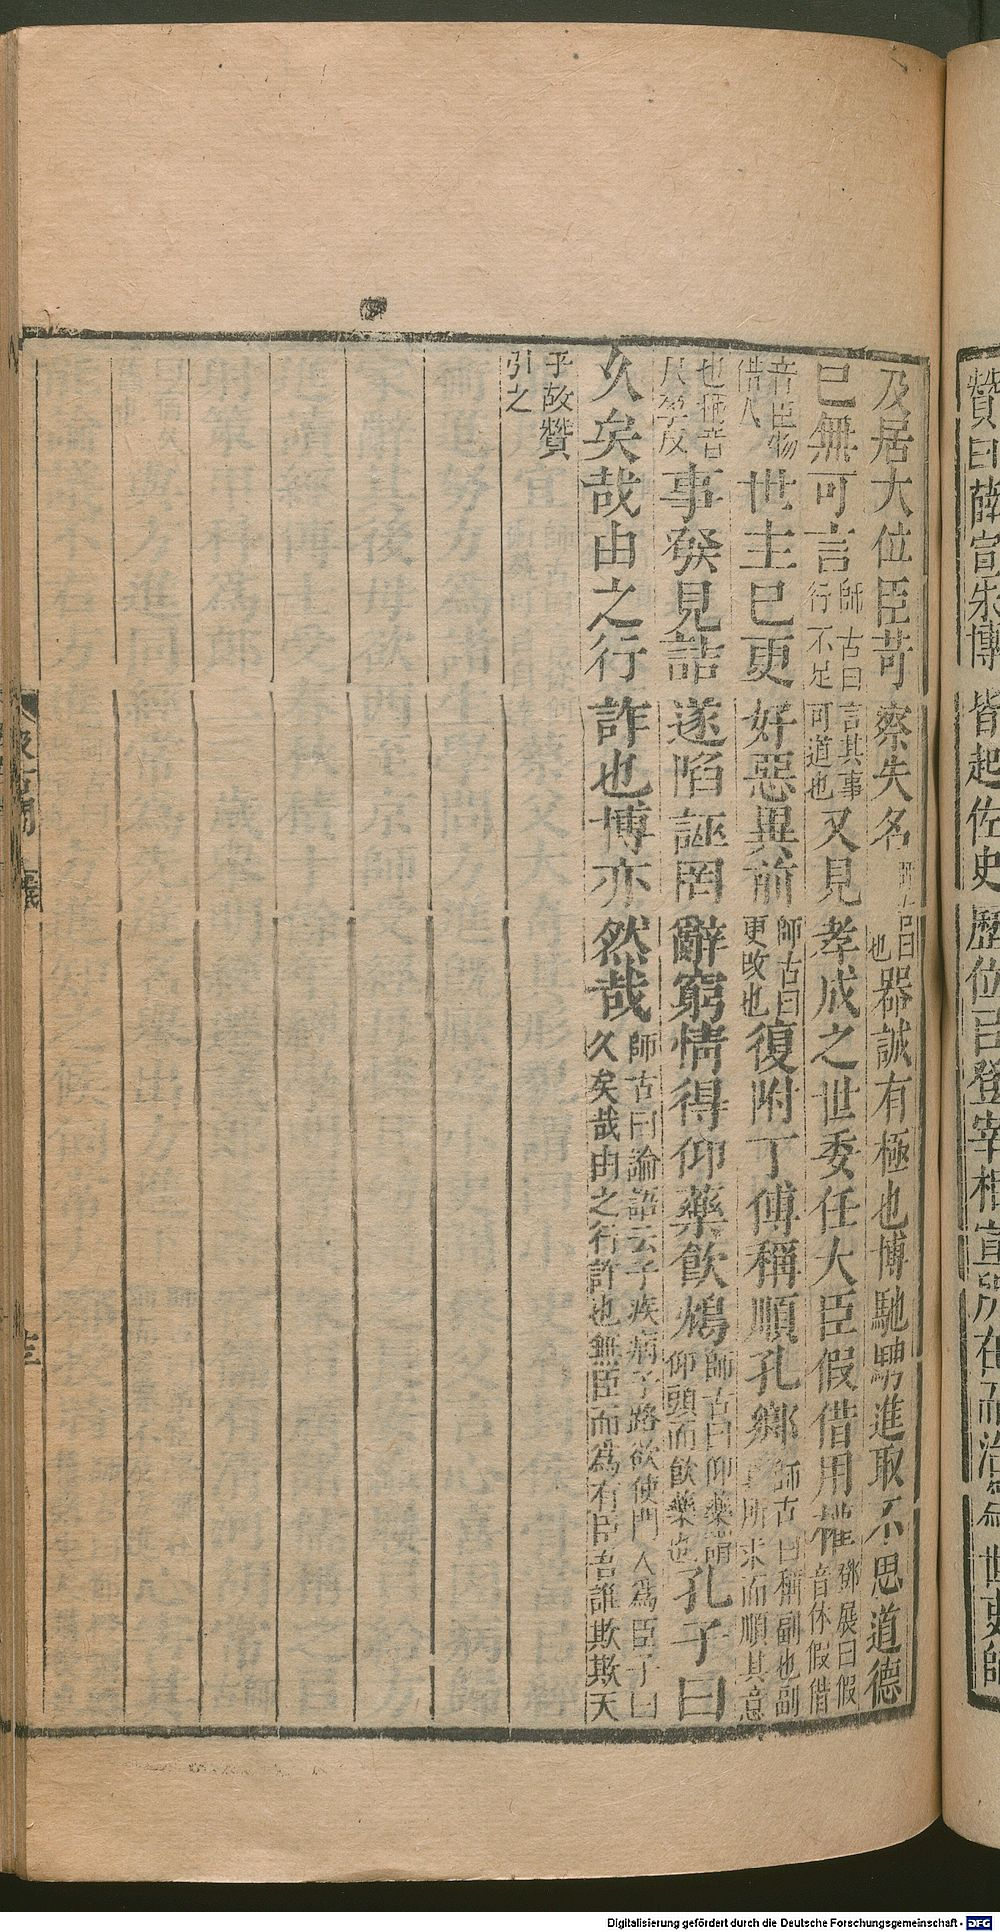 贊曰薛宣朱博皆起佐史歷位㠯登宰相宣所在而治爲世吏師
及居大位臣苛察失名師古曰也器誠有極也博馳騁進取不思道德
已無可言師古曰言其事行不足可道也又見孝成之世委任大臣假借用權鄧展曰假音休假借
音臣物借人世主已更好惡異前師古曰更改也復附丁傅稱順孔鄉師古曰稱副也副其所求而順其意
也極音尺孕反事發見詰遂陷誣罔辭窮情得仰藥飲鴆師古曰仰藥謂仰頭而飲藥也孔子曰
久矣哉由之行詐也博亦然哉師古曰論語云子疾病子路欲使門人爲臣子曰久矣哉由之行詐也無臣而爲有臣吾誰欺欺天
乎故贊引之
汲古閣
Digitalisierung gefördert durch die Deutsche Forschungsgemeinschaft - DFG